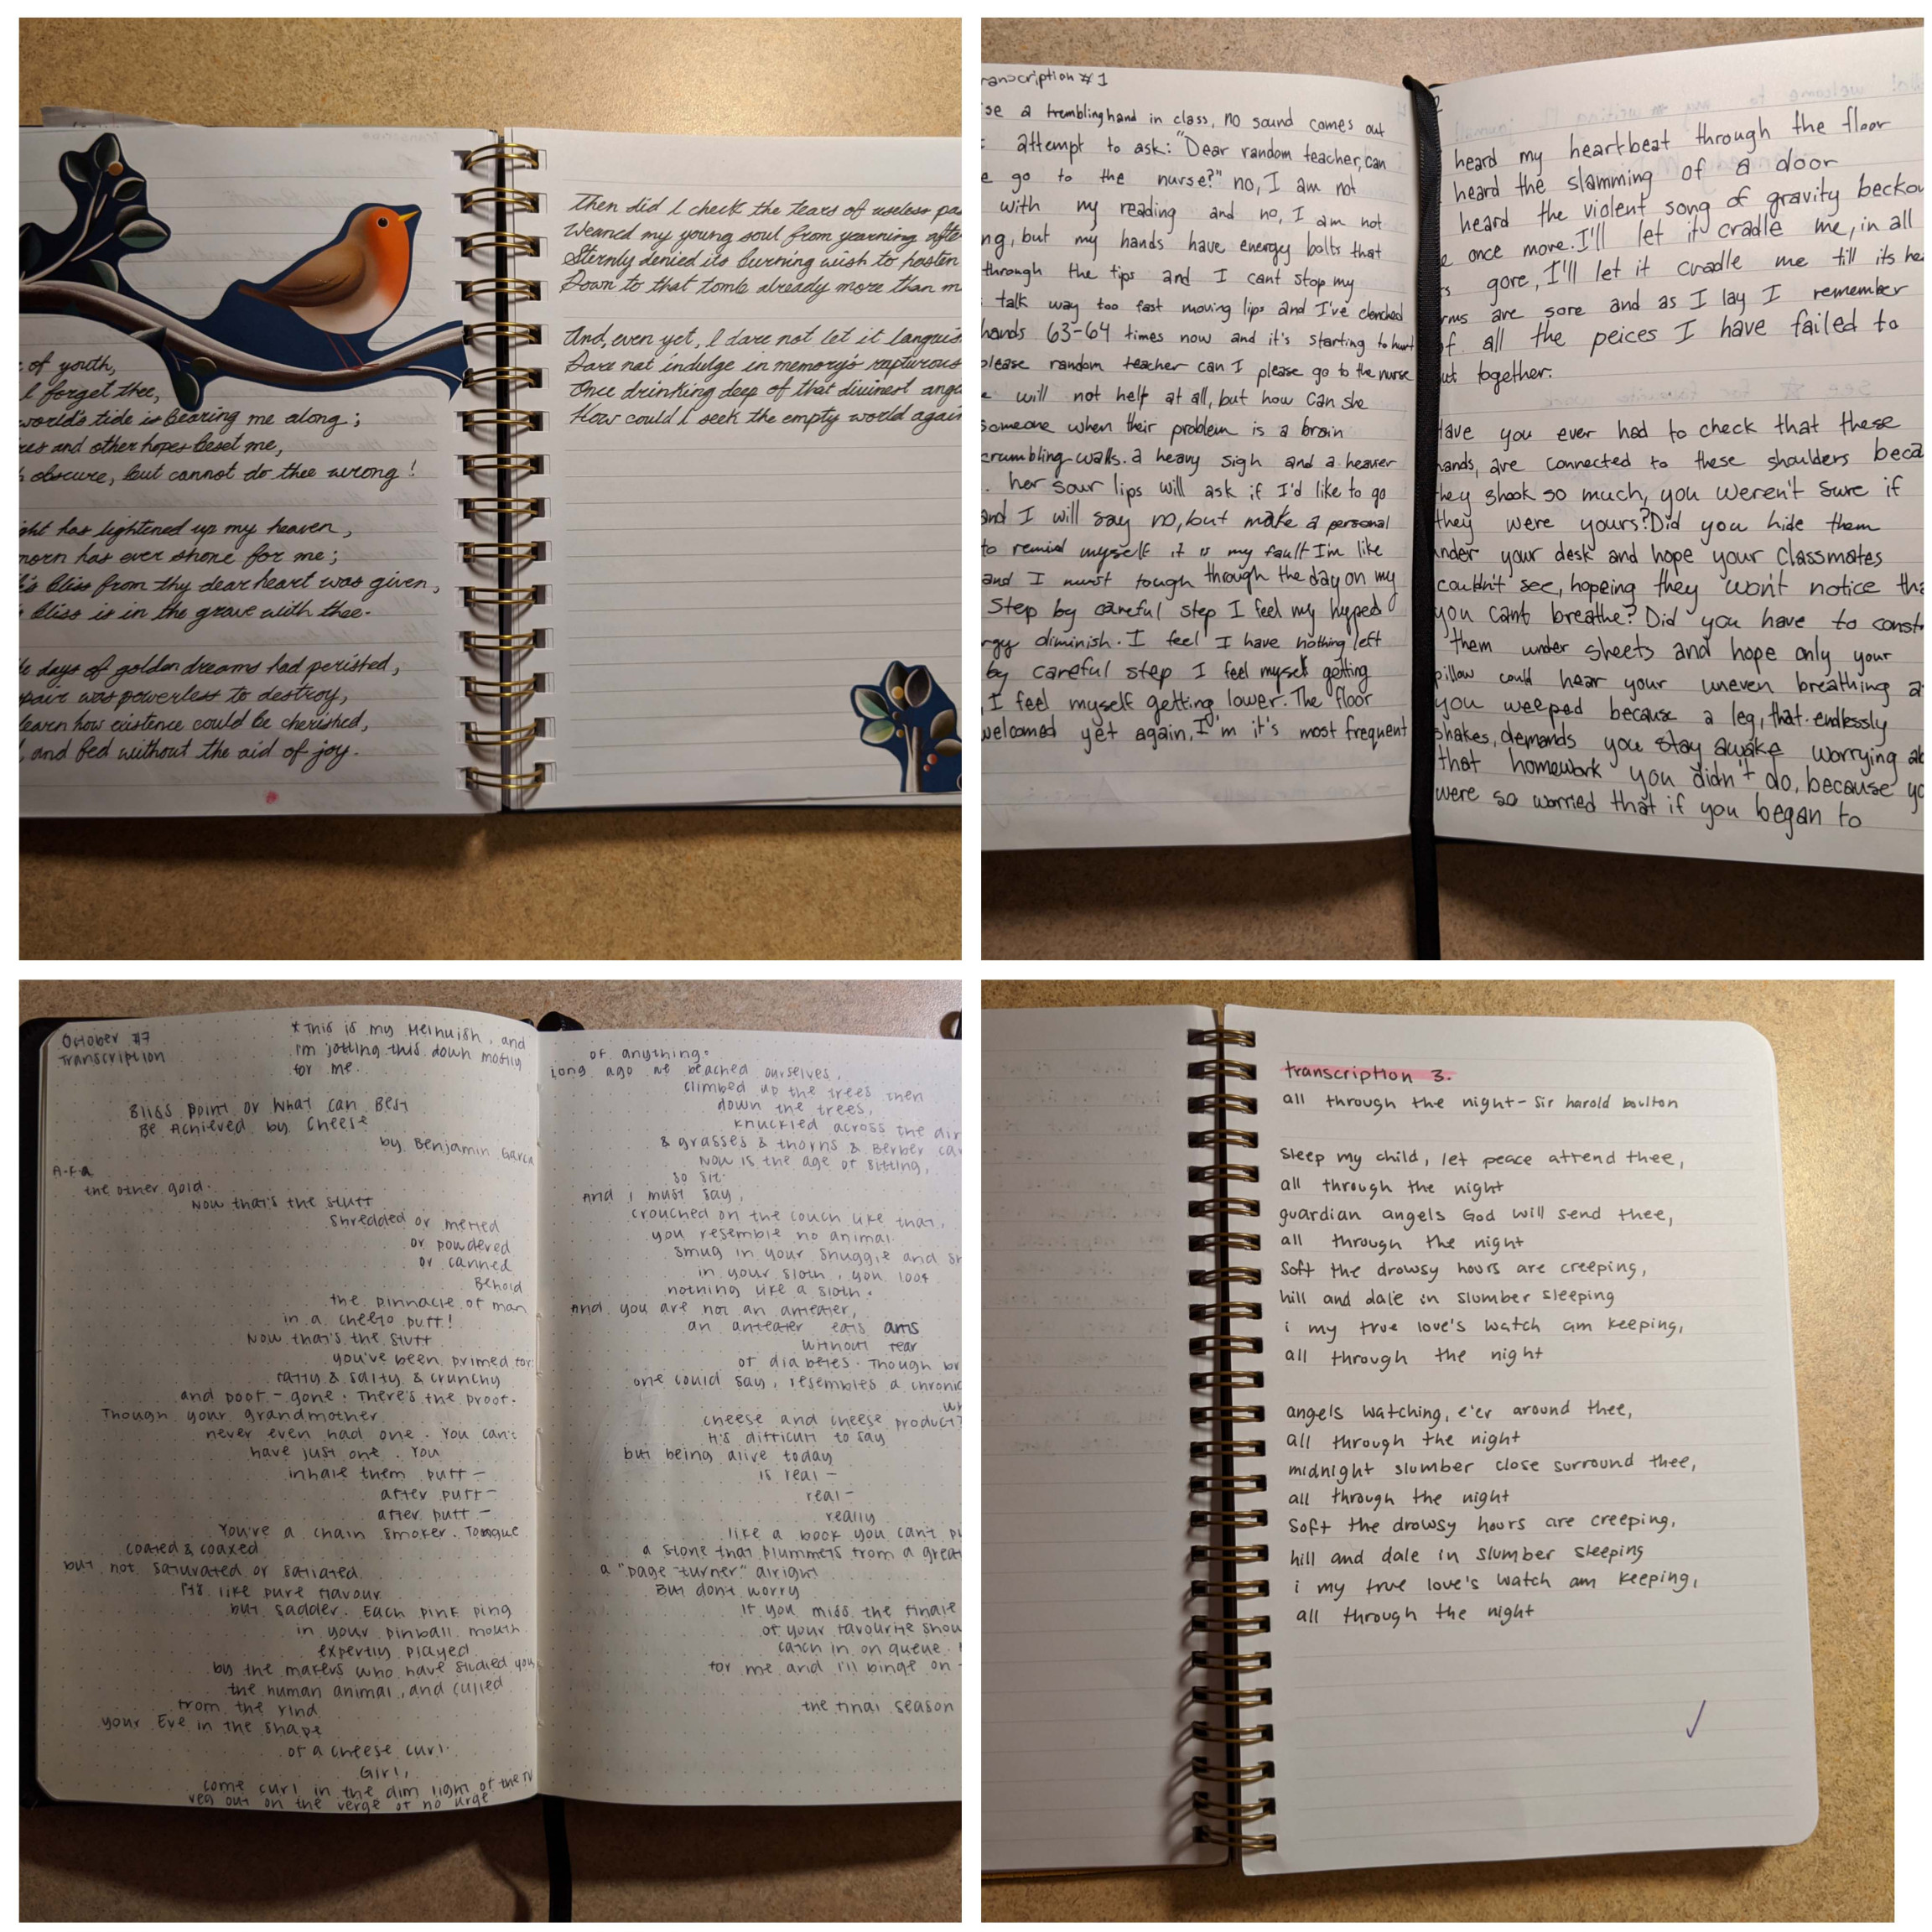 of youth,
I forget thee,
world's tide is bearing me along;
and other hopes beset me,
obscure, but cannot do thee wrong!
has lightened up my heaven,
morn has ever shone for me;
bliss from thy dear heart was given,
bliss is in the grave with thee.
days of golden dreams had perished,
was powerless to destroy,
learn how existence could be cherished,
and fed without the aid of joy.
Then did I check the tears of useless pa
Weaned my young soul from yearning afte
Sternly denied its burning wish to hasten
Down to that tomb already more than m
And, even yet, I dare not let it languis
Dare not indulge in memory's rapturous
Once drinking deep of that divinest angu
How could I seek the empty world again
ranscription #1
se a trembling hand in class, no sound comes out
attempt to ask: "Dear random teacher, can
e go to the nurse?" no, I am not
with my reading and no, I am not
ng, but my hands have energy bolts that
through the tips and I cant stop my
talk way too fast moving lips and I've clenched
hands 63-64 times now and it's starting to hurt
please random teacher can I please go to the nurse
e will not help at all, but how can she
someone when their problem is a brain
crumbling walls. a heavy sigh and a heavier
. her sour lips will ask if I'd like to go
and I will say no, but make a personal
to remind myself it is my fault I'm like
and I must tough through the day on my
Step by careful step I feel my hyped
rgy diminish. I feel I have nothing left
by careful step I feel myself getting
I feel myself getting lower. The floor
welcomed yet again, I'm it's most frequent
heard my heartbeat through the floor
heard the slamming of a door
heard the violent song of gravity beckon
e once more. I'll let it cradle me, in all
s gore, I'll let it cradle me till its he
rms are sore and as I lay I remember
of all the peices I have failed to
ut together.
Have you ever had to check that these
hands, are connected to these shoulders beca
they shook so much, you weren't sure if
they were yours? Did you hide them
under your desk and hope your classmates
couldn't see, hopeing they won't notice tha
you cant breathe? Did you have to const
them under sheets and hope only your
pillow could hear your uneven breathing a
you weeped because a leg, that endlessly
shakes, demands you stay awake worrying ab
that homework you didn't do, because yo
were so worried that if you began to
October #7
Transcription
*This is my Heihuish, and
I'm jotting this down mostly
for me.
Bliss Point or What Can Best
Be Achieved by Cheese
by Benjamin Garcia
A.K.A.
the other gold.
Now that's the stuff
shredded or melted
or powdered
or canned
Behold
the pinnacle of man
in a cheeto puff!
Now that's the stuff
you've been primed for:
fatty & salty & crunchy
and poof - gone. There's the proof.
Though your grandmother
never even had one. You can't
have just one. You
inhale them puff -
after puff -
after puff -
You're a chain smoker. Tongue
coated & coaxed
but not saturated or satiated.
It's like pure flavour
but sadder. Each pink ping
in your pinball mouth
expertly played
by the makers who have studied you,
the human animal, and culled
from the rind
your Eve in the shape
of a cheese curl.
Girl,
come curl in the dim light of the TV
veg out on the verge of no urge
of anything.
Long ago we beached ourselves,
climbed up the trees then
down the trees,
knuckled across the dir
& grasses & thorns & Berber ca
Now is the age of sitting,
so sit.
And I must say,
crouched on the couch like that,
you resemble no animal.
Smug in your snuggie and sn
in your sloth, you look
nothing like a sloth.
And you are not an anteater,
an anteater eats ants
without fear
of diabetes. Though br
one could say, resembles a chronic
wh
cheese and cheese product?
It's difficult to say
but being alive today
is real -
real -
really
like a book you can't pu
a stone that plummets from a great
a "page-turner" alright
But don't worry
if you miss the finale
of your favourite show
catch in on queue.
for me and I'll binge on
the final season
transcription 3.
all through the night - Sir harold boulton
Sleep my child, let peace attend thee,
all through the night
guardian angels God will send thee,
all through the night
Soft the drowsy hours are creeping,
hill and dale in slumber sleeping
i my true love's watch am keeping,
all through the night
angels watching, e'er around thee,
all through the night
midnight slumber close surround thee,
all through the night
Soft the drowsy hours are creeping,
hill and dale in slumber sleeping
i my true love's watch am keeping,
all through the night